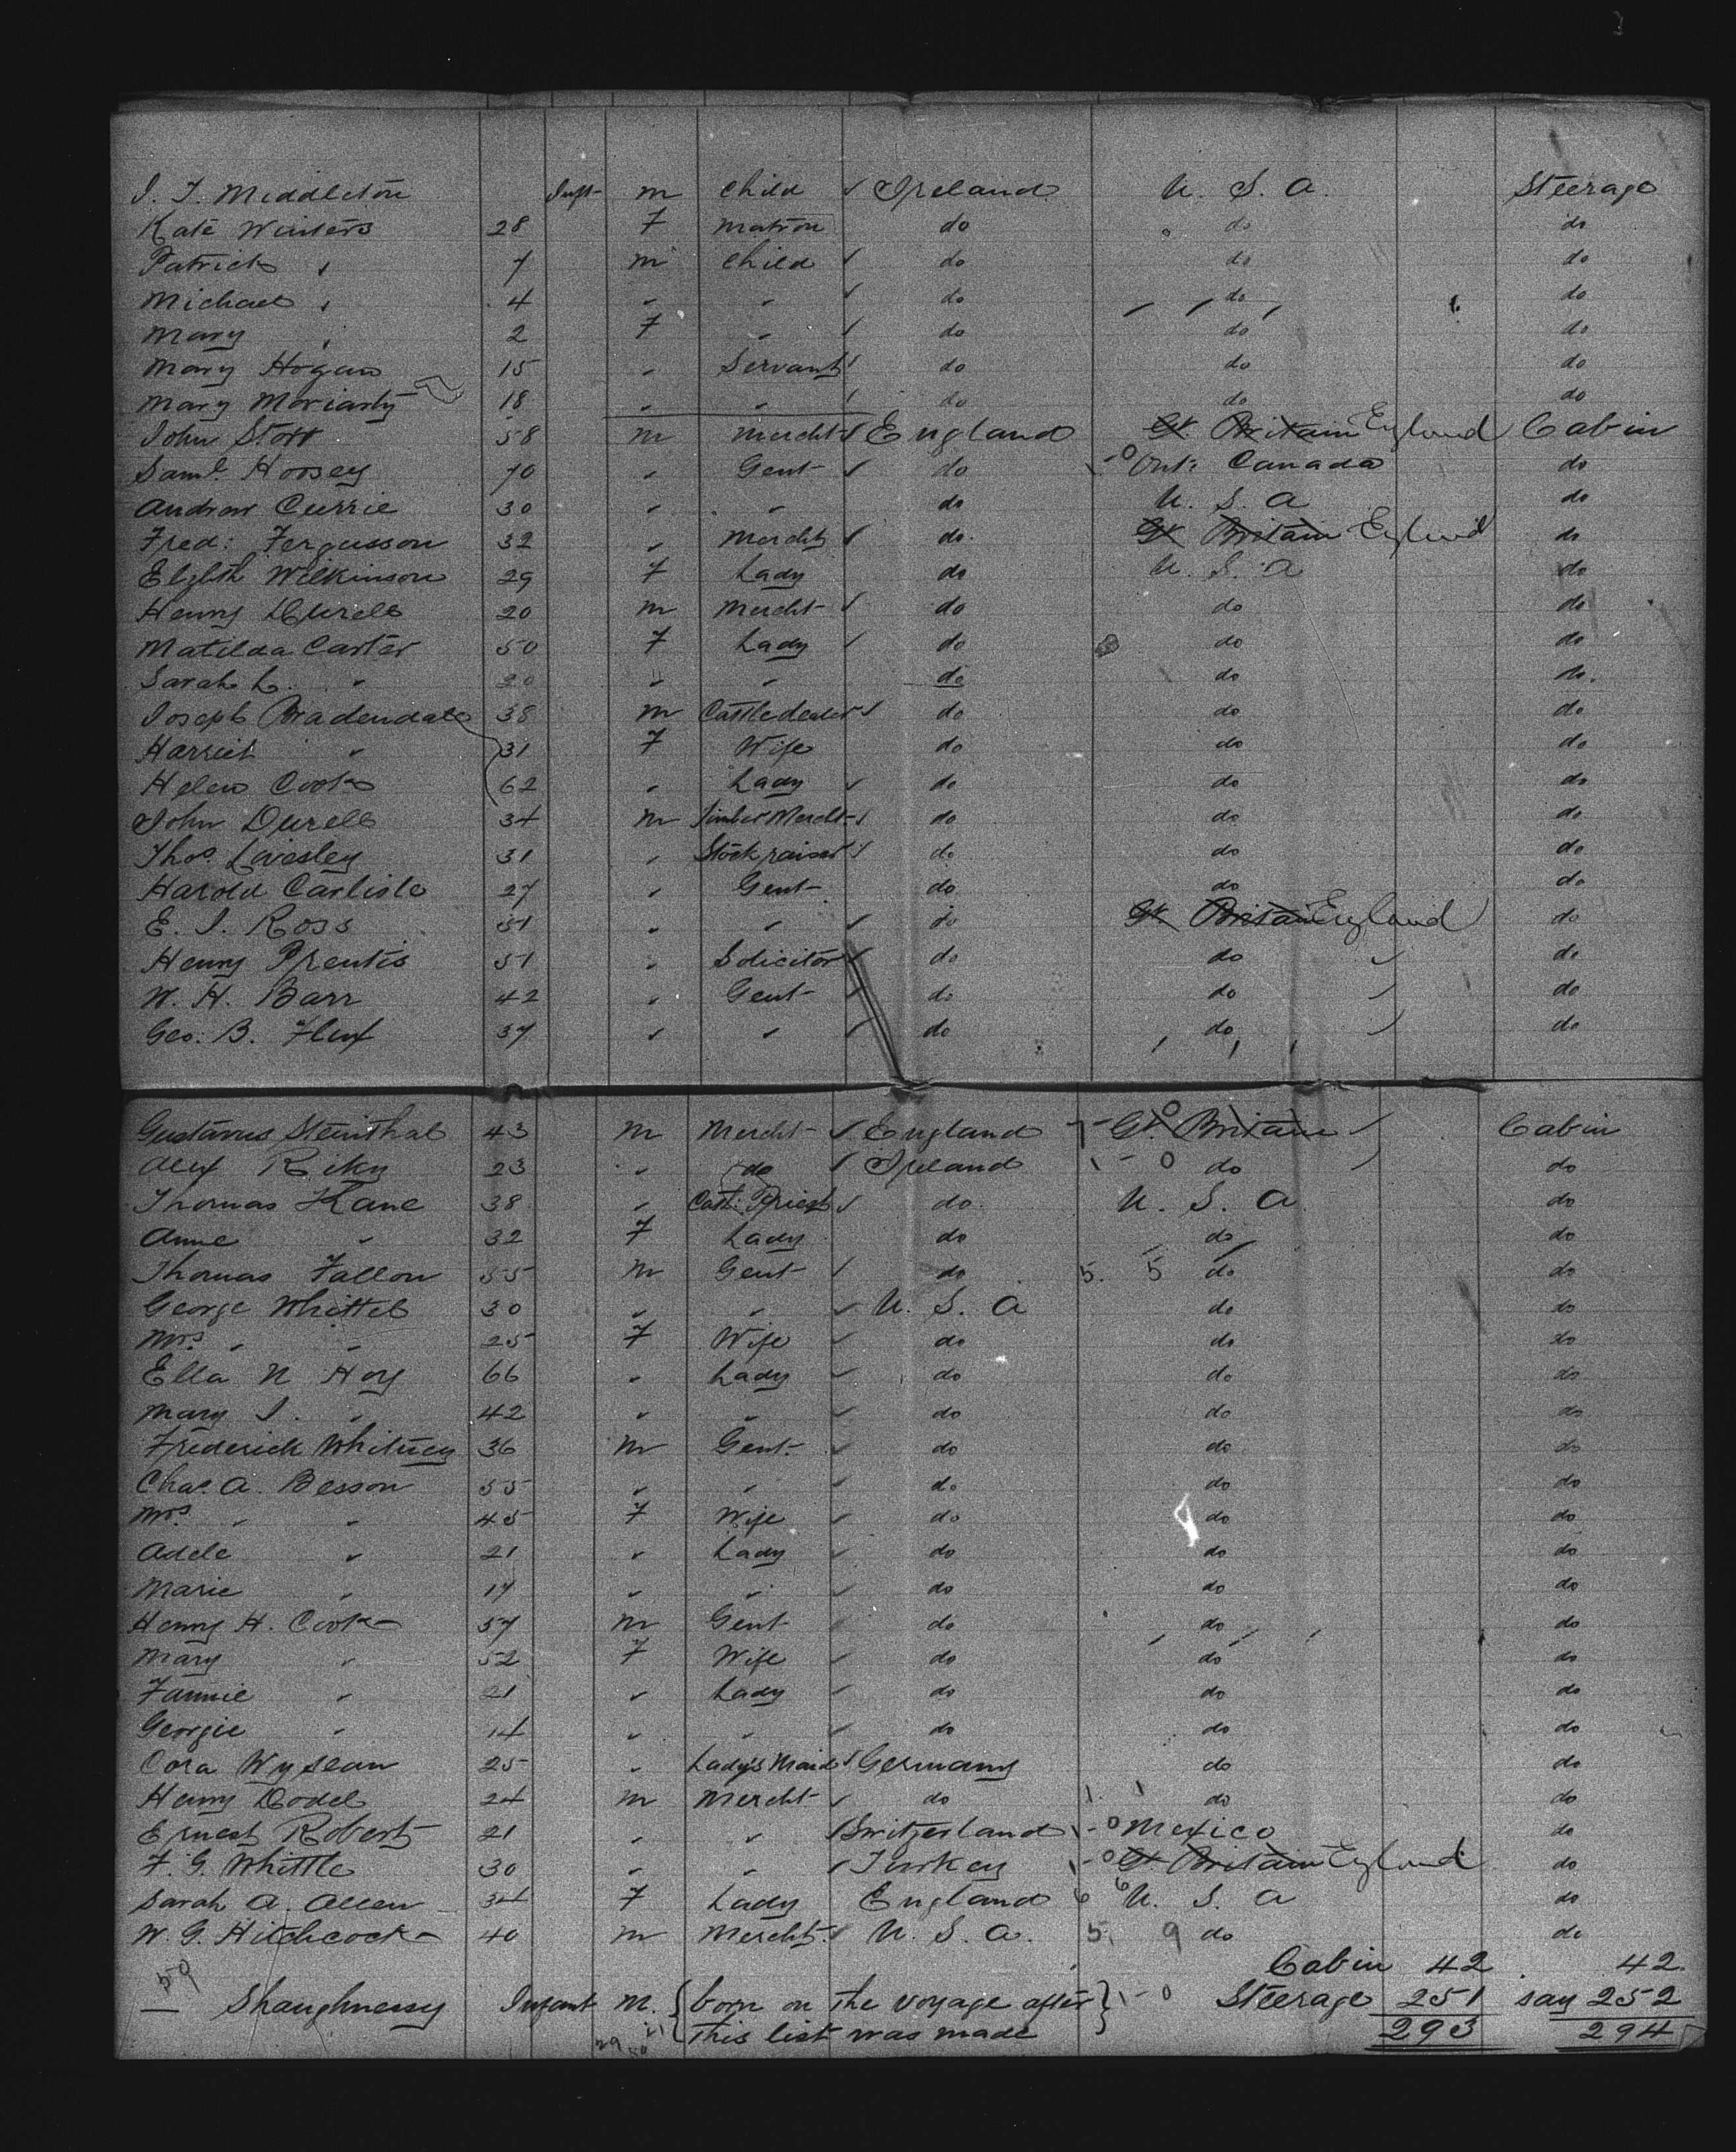 J. J. Middleton Inft m Child ✓ Ireland U. S. A. Steerage
Kate Winters 28 F Matron do do do
Patrick " 7 m Child ✓ do do do
Michael " 4 " " ✓ do do do
Mary " 2 F " ✓ do do do
Mary Hogan 15 " Servant ✓ do do do
Mary Moriarty 18 " " ✓ do do do
John Stott 58 m Mercht ✓ England Gt Britain England Cabin
Saml. Horsey 70 " Gent ✓ do -0 Ont: Canada do
Andrew Currie 30 " " do U. S. A do
Fred: Fergusson 32 " Mercht ✓ do Gt Britain England do
Elzbth Wilkinson 29 F Lady do U. S. A do
Henry Durell 20 m Mercht ✓ do do do
Matilda Carter 50 F Lady ✓ do do do
Sarah L. " 20 " " do do do
Joseph Bradendale 38 m Cattle dealer ✓ do do do
Harriet " 31 F Wife do do do
Helen Cook 62 " Lady ✓ do do do
John Durell 34 m Timber Mercht ✓ do do do
Thos. Livesley 31 " Stock raiser ✓ do do do
Harold Carlisle 27 " Gent do do do
E. J. Ross 51 " " ✓ do Gt Britain England do
Henry Prentis 51 " Solicitor ✓ do do do
W. H. Barr 42 " Gent ✓ do do do
Geo: B. Flux 37 " " ✓ do do do
Gustavus Steinthal 43 m Mercht ✓ England 7-0 Gt. Britain Cabin
Alex Riky 23 " do ✓ Ireland 1-0 do do
Thomas Kane 38 " Cath: Priest ✓ do U. S. A do
Anne " 32 F Lady do do do
Thomas Fallon 55 m Gent ✓ do 5. 5 do do
George Whittel 30 " " ✓ U. S. A do do
Mrs. " " 25 F Wife ✓ do do do
Ella N Hoy 66 " Lady ✓ do do do
Mary J. " 42 " " ✓ do do do
Frederick Whitney 36 m Gent ✓ do do do
Chas. A. Besson 55 " " ✓ do do do
Mrs. " " 45 F Wife ✓ do do do
Adele " 21 " Lady ✓ do do do
Marie " 17 " " ✓ do do do
Henry H. Cook 57 m Gent do do do
Mary " 52 F Wife ✓ do do do
Fannie " 21 " Lady ✓ do do do
Georgie " 14 " " ✓ do do do
Cora Wysean 25 " Lady's Maid ✓ Germany do do
Henry Dodel 24 m Mercht ✓ do 1. 1 do do
Ernest Robert 21 " " ✓ Switzerland 1-0 Mexico do
F. G. Whittle 30 " " ✓ Turkey 1-0 Gt Britain England do
Sarah A. Allen 34 F Lady England 6 6 U. S. A do
W. G. Hitchcock 40 m Mercht. ✓ U. S. A. 5. 9 do do
Cabin 42 42
— Shaughnessy Infant M. { born on the voyage after } 1-0 Steerage 251 say 252
this list was made 293 294